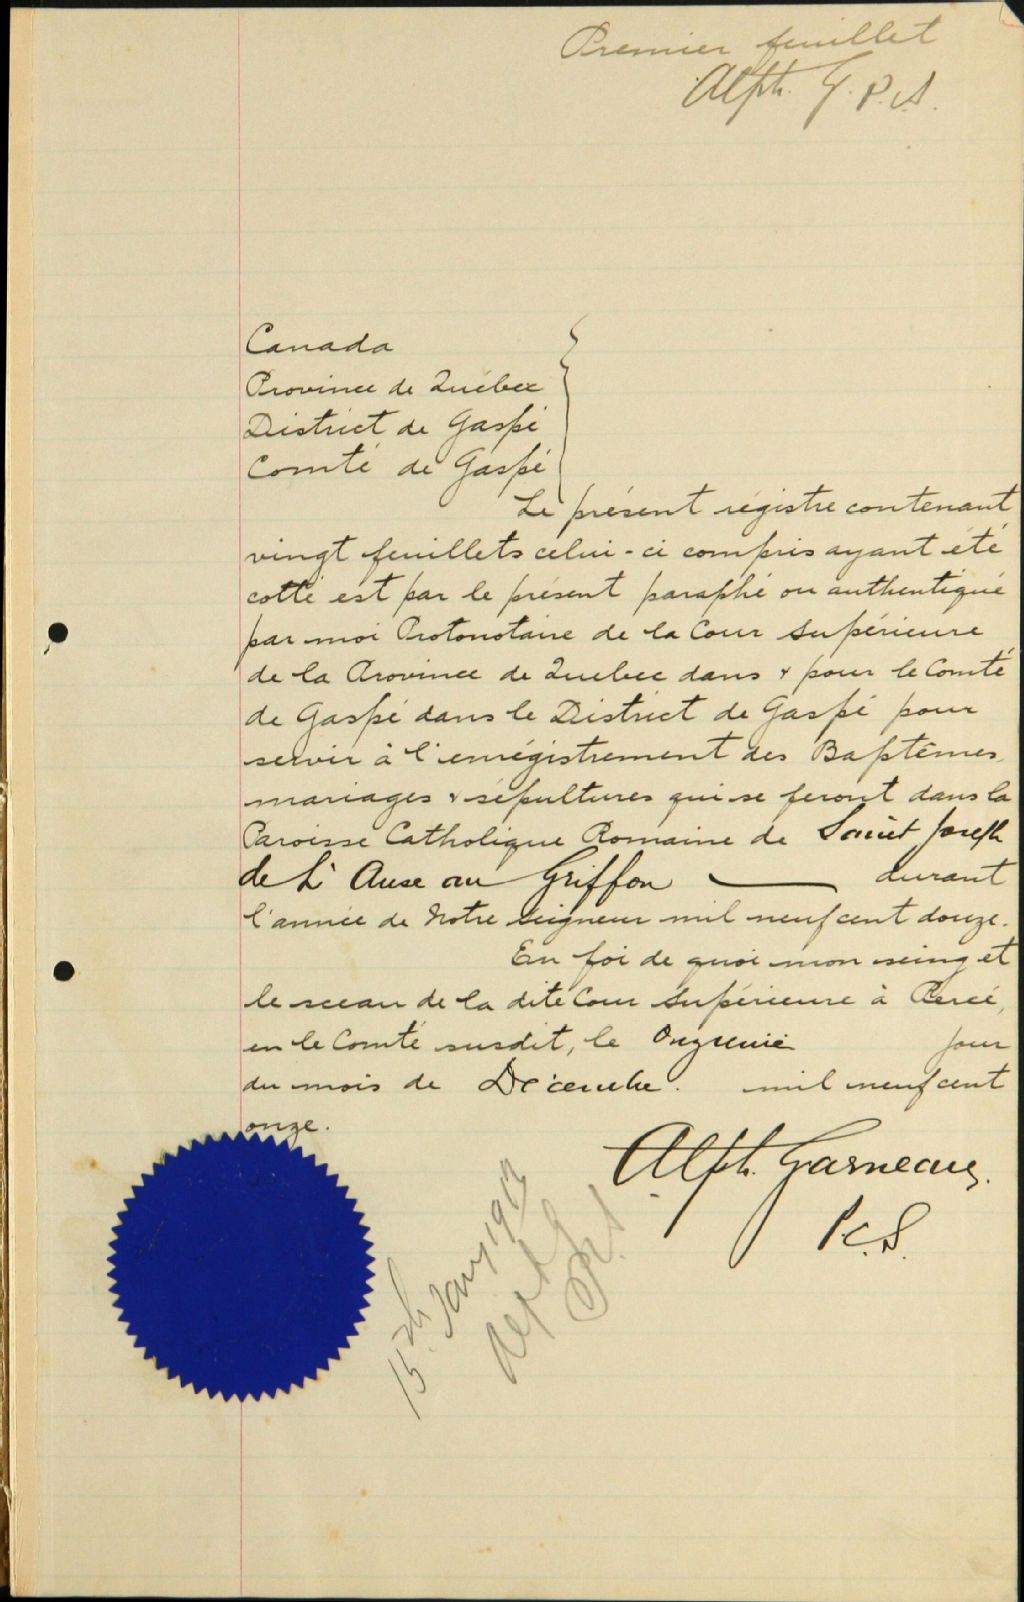 Premier feuillet
Alph. G. P.C.S.
Canada
Province de Québec
District de Gaspé
Comté de Gaspé
Le présent régistre contenant
vingt feuillets celui-ci compris ayant été
cotté est par le présent paraphé ou authentiqué
par moi Protonotaire de la Cour Supérieure
de la Province de Quebec dans & pour le Comté
de Gaspé dans le District de Gaspé pour
servir à l'enrégistrement des Baptêmes,
mariages & sépultures qui se feront dans la
Paroisse Catholique Romaine de Saint Joseph
de L'Anse au Griffon — durant
l'année de Notre Seigneur mil neuf cent douze.
En foi de quoi mon seing et
le sceau de la dite Cour Supérieure à Percé,
en le Comté susdit, le Onzième jour
du mois de Décembre. mil neuf cent
onze.
Alph. Garneau,
P.C.S.
15th Jany 1913
Alph G